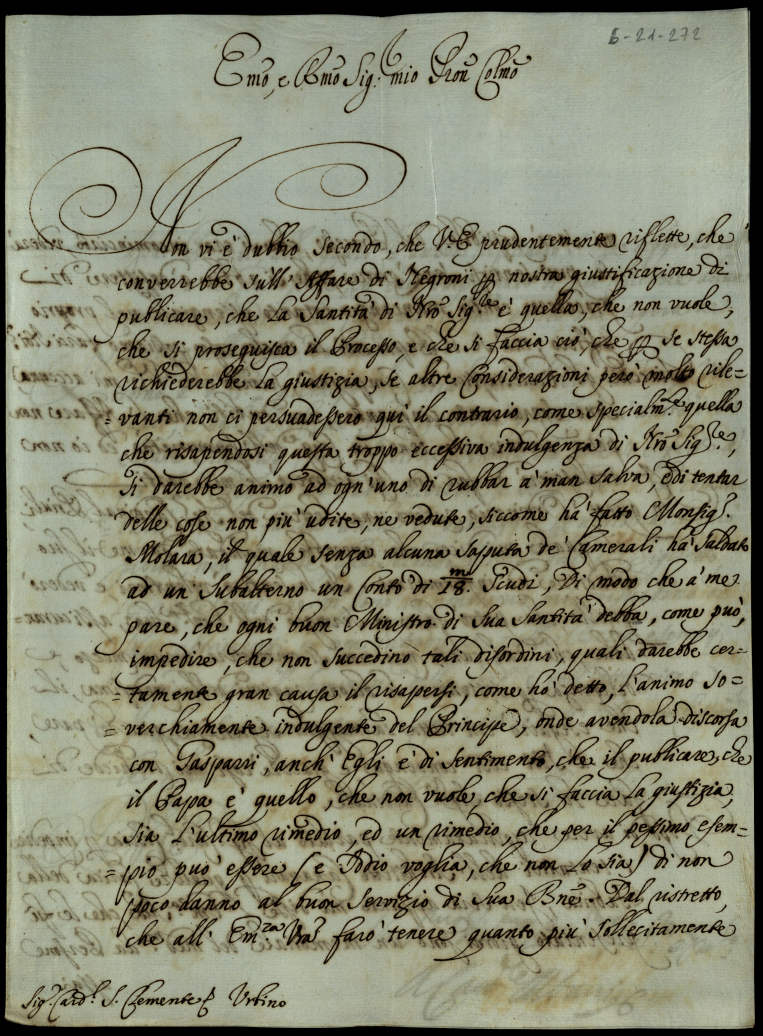 6-21-272
Emo, e Rmo Sig.r mio Pron Colmo
Non vi è dubbio secondo, che V.E. prudentemente riflette, che
converrebbe sull'Affare di Negroni p nostra giustificazione di
publicare, che La Santità di Nro Sig.re è quella, che non vuole,
che si proseguisca il Processo, e che si faccia ciò, che p se stessa
richiederebbe La giustizia, se altre Considerazioni però molto rile=
=vanti non ci persuadessero qui il contrario, come specialm.te quella
che risapendosi questa troppo eccessiva indulgenza di Nro Sig.re,
si darebbe animo ad ogn'uno di rubbar à man salva, e di tentar
delle cose non più udite, ne vedute, siccome hà fatto Monsig.r
Molara, il quale senza alcuna saputa de' Camerali hà saldato
ad un Subalterno un Conto di 18.m Scudi, Di modo che à me
pare, che ogni buon Ministro di Sua Santità debba, come può,
impedire, che non succedino tali disordini, quali darebbe cer=
=tamente gran causa il risapersi, come hò detto, L'animo so=
=verchiamente indulgente del Principe, onde avendola discorsa
con Gasparri, anch'Egli è di sentimento, che il publicare, che
il Papa è quello, che non vuole, che si faccia La giustizia,
sia L'ultimo rimedio, ed un rimedio, che per il pessimo esem=
=pio può essere (e Iddio voglia, che non Lo sia) di non
poco danno al buon Servizio di Sua Bne. Dal ristretto,
che all'Em.za Vra farò tenere quanto più sollecitamente
Sig.r Card.l S. Clemente Urbino